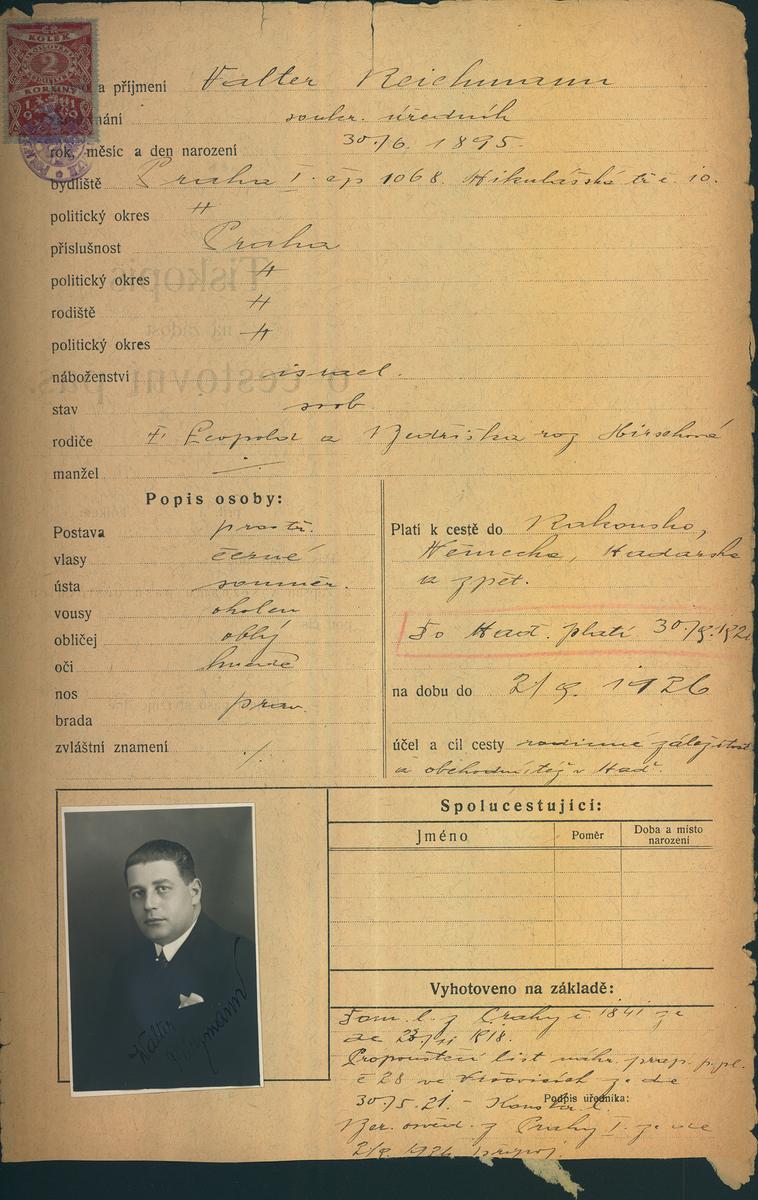 KOLEK
2
KORUNY
a příjmení Valter Reichmann
soukr. úředník
rok, měsíc a den narození 30./6. 1895.
bydliště Praha I. čp 1068. Mikulášská tř. č. 10.
politický okres "
příslušnost Praha
politický okres "
rodiště "
politický okres "
náboženství israel.
stav svob.
rodiče Leopold a Bedřiška roz Hirschová
manžel ·/·
Popis osoby:
Postava prostř.
vlasy černé
ústa souměr.
vousy oholen
obličej oblý
oči hnědé
nos
brada prav.
zvláštní znamení ·/.
Platí k cestě do Rakouska,
Německa, Maďarska
a zpět.
Do Maď. platí
na dobu do 2/9. 1926
účel a cíl cesty rodinné záležitosti
a obchodní též v Maď.
Spolucestující:
Jméno Poměr Doba a místo narození
Vyhotoveno na základě:
Dom. l. z Prahy č 1841 ze
Propouštěcí list náhr. prap. p. pl.
č 28 ve Vršovicích ze dne
30./5. 21. –
Podpis úředníka:
Ber. osvěd. z Prahy I. ze dne
Valter